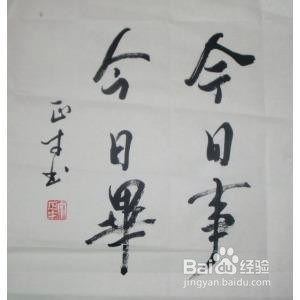 今日事
今日畢
正才书
Baidu经验
jingyan.baidu.com